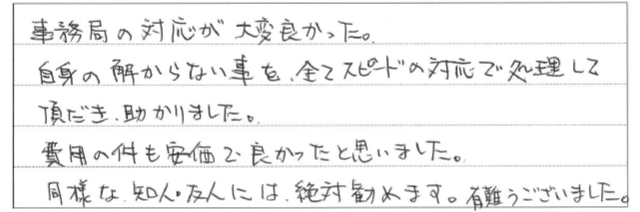 事務局の対応が大変良かった。
自身の解からない事を、全てスピードの対応で処理して
頂だき、助かりました。
費用の件も安価で良かったと思いました。
同様な、知人・友人には、絶対勧めます。有難うございました。